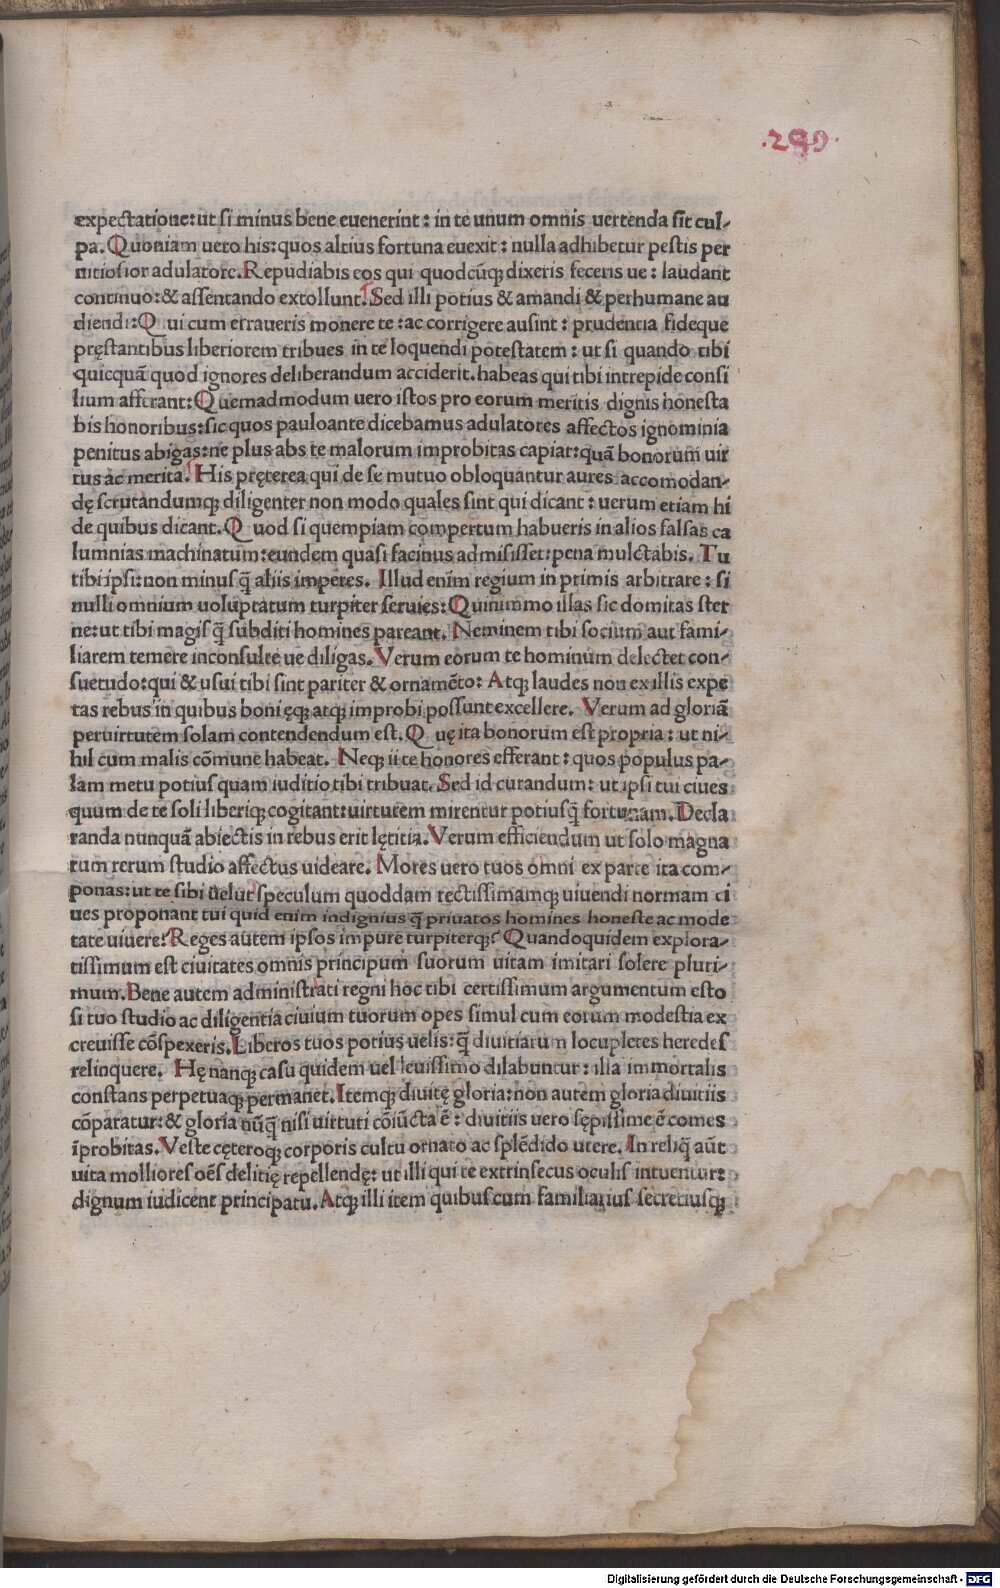 .289.
expectatione: ut si minus bene euenerint: in te unum omnis uertenda sit cul-
pa. Quoniam uero his: quos altius fortuna euexit: nulla adhibetur pestis per
nitiosior adulatore. Repudiabis eos qui quodcūqȝ dixeris feceris ue: laudant
continuo: & assentando extollunt. Sed illi potius & amandi & perhumane au
diendi: Qui cum erraueris monere te: ac corrigere ausint: prudentia fideque
pręstantibus liberiorem tribues in te loquendi potestatem: ut si quando tibi
quicquā quod ignores deliberandum acciderit. habeas qui tibi intrepide consi
lium afferant: Quemadmodum uero istos pro eorum meritis dignis honesta
bis honoribus: sic quos pauloante dicebamus adulatores affectos ignominia
penitus abigas: ne plus abs te malorum improbitas capiat: quā bonorum uir
tus ac merita. His pręterea qui de se mutuo obloquantur aures accomodan-
dę scrutandumqȝ diligenter non modo quales sint qui dicant: uerum etiam hi
de quibus dicant. Quod si quempiam compertum habueris in alios falsas ca
lumnias machinatum: eundem quasi facinus admisisset: pena mulctabis. Tu
tibi ipsi: non minus q̄ aliis imperes. Illud enim regium in primis arbitrare: si
nulli omnium uoluptatum turpiter seruies: Quinimmo illas sic domitas ster
ne: ut tibi magis q̄ subditi homines pareant. Neminem tibi socium aut fami-
liarem temere inconsulte ue diligas. Verum eorum te hominum delectet con-
suetudo: qui & usui tibi sint pariter & ornamēto: Atqȝ laudes non ex illis expe
tas rebus in quibus boni ęqȝ atqȝ improbi possunt excellere. Verum ad gloriā
per uirtutem solam contendendum est. Quę ita bonorum est propria: ut ni-
hil cum malis cōmune habeat. Neqȝ ii te honores efferant: quos populus pa-
lam metu potius quam iuditio tibi tribuat. Sed id curandum: ut ipsi tui ciues
quum de te soli liberiqȝ cogitant: uirtutem mirentur potius q̄ fortunam. Decla
randa nunquā abiectis in rebus erit lętitia. Verum efficiendum ut solo magna
rum rerum studio affectus uideare. Mores uero tuos omni ex parte ita com-
ponas: ut te sibi uelut speculum quoddam rectissimamqȝ uiuendi normam ci
ues proponant tui quid enim indignius q̄ priuatos homines honeste ac mode
tate uiuere? Reges autem ipsos impure turpiterqȝ? Quandoquidem explora-
tissimum est ciuitates omnis principum suorum uitam imitari solere pluri-
mum. Bene autem administrati regni hoc tibi certissimum argumentum esto
si tuo studio ac diligentia ciuium tuorum opes simul cum eorum modestia ex
creuisse cōspexeris. Liberos tuos potius uelis: q̄ diuitiarum locupletes heredes
relinquere. Hę nanqȝ casu quidem uel leuissimo dilabuntur: illa immortalis
constans perpetuaqȝ permanet. Itemqȝ diuitę gloria: non autem gloria diuitiis
cōparatur: & gloria nūq̄ nisi uirtuti cōiūcta ē: diuitiis uero sępissime ē comes
īprobitas. Veste cęteroqȝ corporis cultu ornato ac splēdido utere. In reliq̄ aūt
uita molliores oēs delitię repellendę: ut illi qui te extrinsecus oculis intuentur:
dignum iudicent principatu. Atqȝ illi item quibus cum familiarius secretiusqȝ
Digitalisierung gefördert durch die Deutsche Forschungsgemeinschaft - DFG